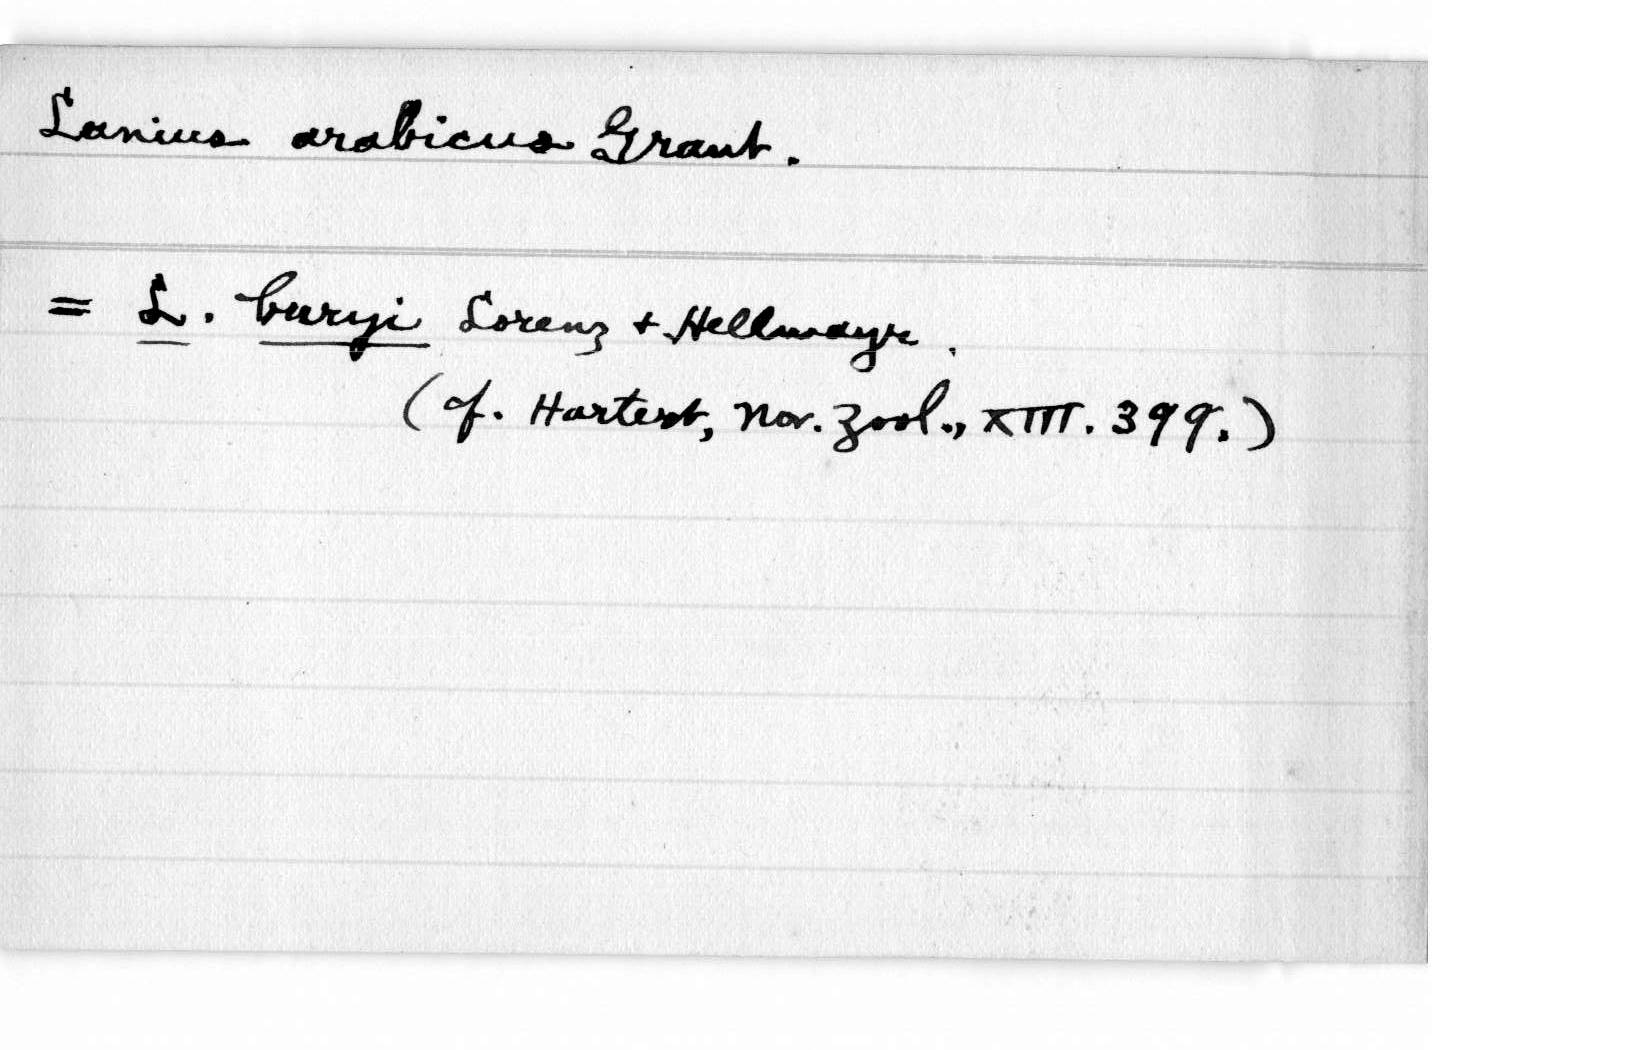 Lanius arabicus Grant.
= L. buryi Lorenz + Hellmayr.
(cf. Hartert, Nov. Zool., XIII. 399.)